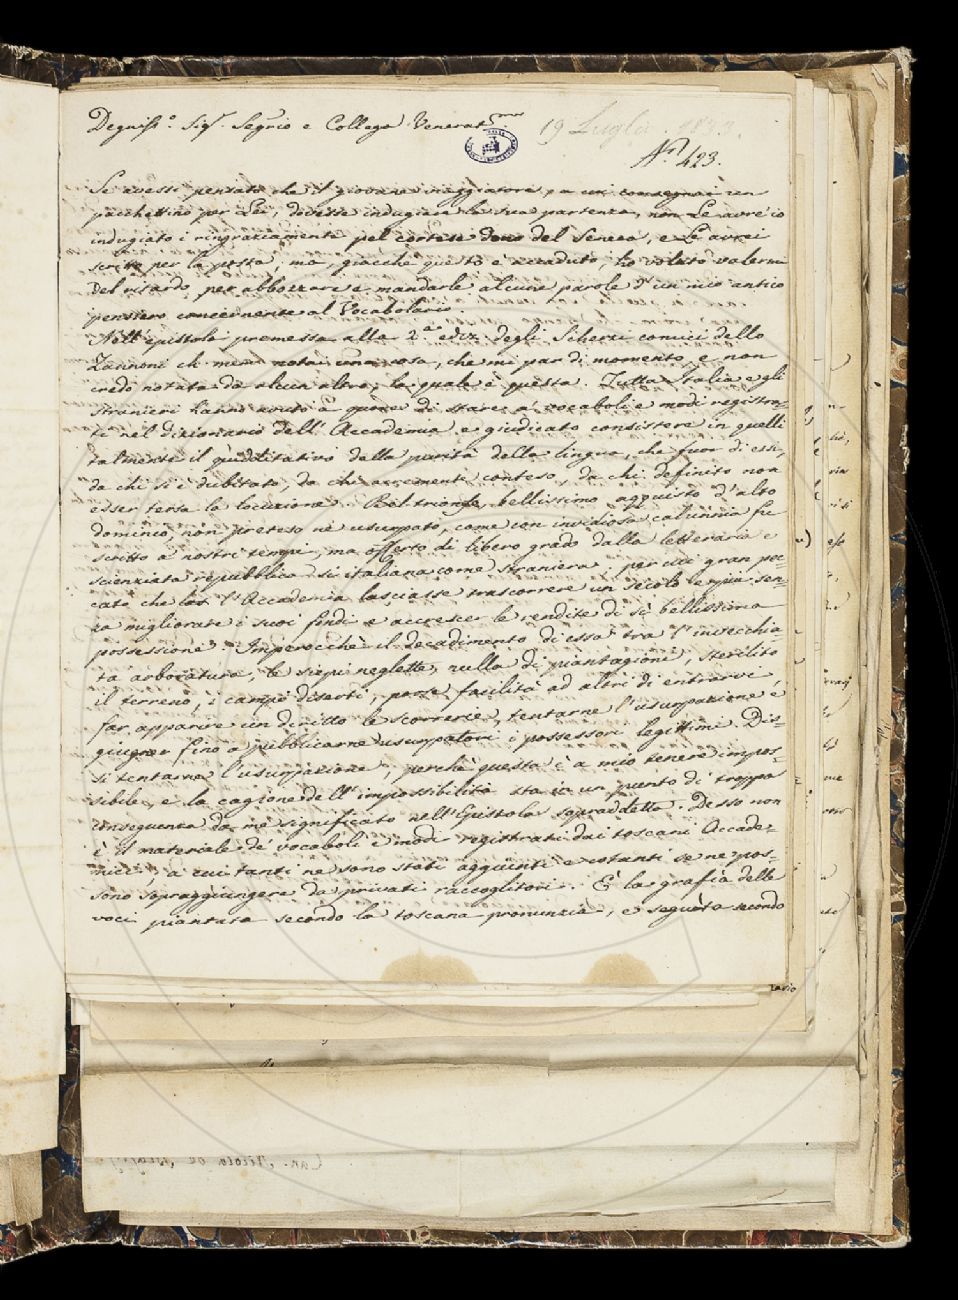 Degniss.º Sig.r Segrio e Collega Venerat.mo
19 Luglio. 1833.
N.º 423.
Se avessi pensato che il giovane viaggiatore, a cui consegnai un
pacchettino per Lei, dovesse indugiare la sua partenza, non Le avre' io
indugiato i ringraziamenti pel cortese dono del Seneca, e Le avrei
scritto per la posta; ma, giacchè questo è accaduto, ho voluto valermi
del ritardo per abbozzare e mandarle alcune parole d'un mio antico
pensiero concernente al Vocabolario.
Nell'epistola premessa alla 2.a ediz. degli Scherzi comici dello
Zannoni ch. mem. notai una cosa, che mi par di momento, e non
credo notata da alcun altro; la quale è questa. Tutta Italia e gli
stranieri hanno avuto a di stare a' vocaboli e modi registra-
ti nel dizionario dell'Accademia, e giudicato consistere in quelli
talmente il della purità della lingua, che fuor di essi,
da chi si è dubitato, da chi conteso, da chi definito non
esser tersa la locuzione. Bel trionfo, bellissimo acquisto d'alto
dominio, non preteso nè usurpato, come con invidiosa calunnia fu
scritto a' nostri tempi, ma offerto di libero grado dalla letteraria e
scienziata repubblica sì italiana come straniera; per cui gran pec-
cato che l'Accademia lasciasse trascorrere un secolo e più sen-
za migliorare i suoi fondi e accrescer le rendite di sì bellissima
possessione. Imperocchè il decadimento di essa tra l'invecchia-
ta arboratura, le siepi neglette, nulla di piantagioni, sterilito
il terreno, i campi diserti, porse facilità ad altri di entrarvi,
far apparire un diritto le scorrerie, tentarne l'usurpazione e
giugner fino a pubblicarne usurpatori i possessori legittimi. Dis-
si tentarne l'usurpazione, perchè questa è a mio tenere impos-
sibile, e la cagione dell'impossibilità sta in un punto di troppa
conseguenza da me significato nell'Epistola sopraddetta. Desso non
è il materiale de' vocaboli e modi registrati dai toscani Accade-
mici, a cui tanti ne sono stati aggiunti e cotanti se ne pos-
sono sopraggiungere da privati raccoglitori. È la grafia delle
voci piantata secondo la toscana pronunzia, e seguita secondo